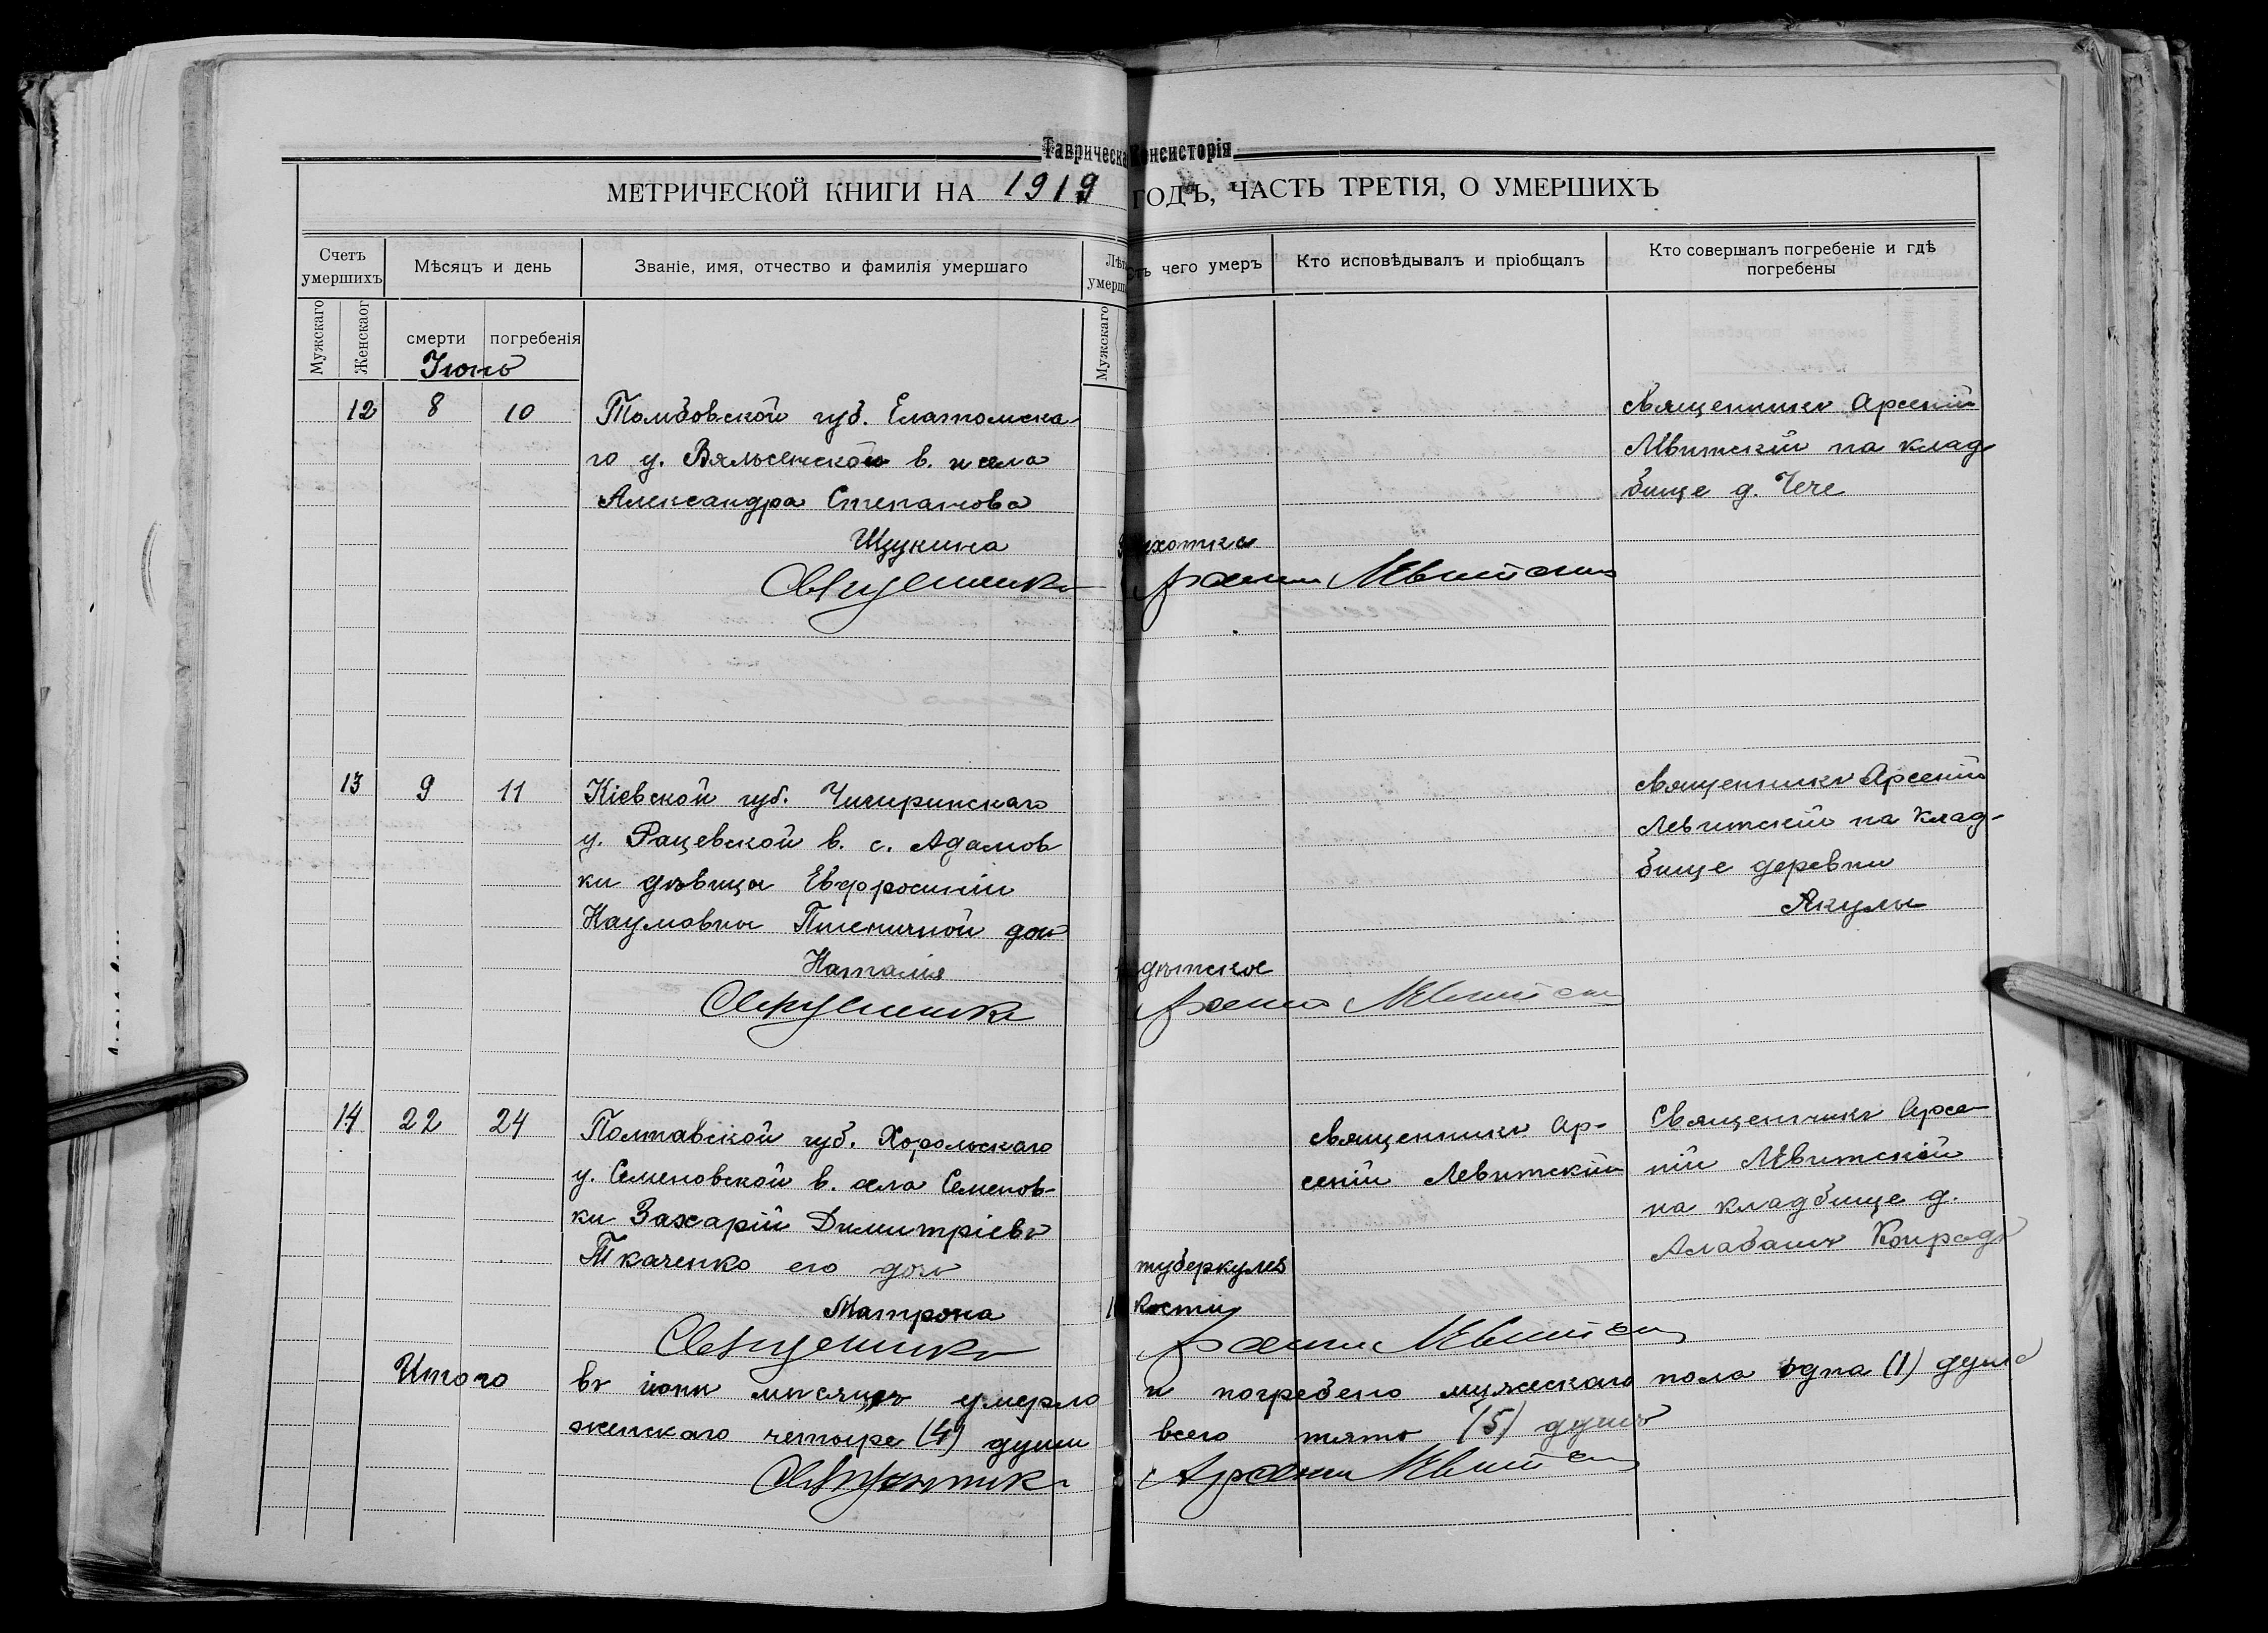 Таврическа Консисторія
МЕТРИЧЕСКОЙ КНИГИ НА 1919 ГОДЪ, ЧАСТЬ ТРЕТІЯ, О УМЕРШИХЪ
Счетъ умершихъ
Мѣсяцъ и день
Званіе, имя, отчество и фамилія умершаго
Лѣт
умерш
чего умеръ
Кто исповѣдывалъ и пріобщалъ
Кто совершалъ погребеніе и гдѣ
погребены
Мужскаго
Женскаог
смерти
погребенія
Мужскаго
Іюнь
12 8 10
Томбовской губ. Елатомска-
го у. Вяльсенской в. и села
Александра Степанова
Щукина
чахотка
священникъ Арсеній
Лѣвитскій на клад
бище д. Чече
Священникъ Арсеній Лѣвитскій
13 9 11
Кіевской губ. Чигиринскаго
у. Рацевской в. с. Адамов
ки дѣвицы Евфросиніи
Наумовны Пшеничной дочь
Наталія
дѣтское
священникъ Арсеній
Левитскій на клад-
бище деревни
Якулы
Священникъ Арсеній Лѣвитскій
14 22 24
Полтавской губ. Хорольскаго
у. Семеновской в. села Семенов-
ки Захарій Димитріевъ
Ткаченко его дочь
Матрона
туберкулез
кости
священникъ Ар-
сеній Левитскій
Священникъ Арсе-
ній Лѣвитскій
на кладбище д.
Алабашъ Конрадъ
Священникъ Арсеній Лѣвитскій
Итого въ іюнѣ мѣсяцѣ умерло и погребено мужескаго пола одна (1) душа
женскаго четыре (4) души всего пять (5) душъ
Священникъ Арсеній Лѣвитскій